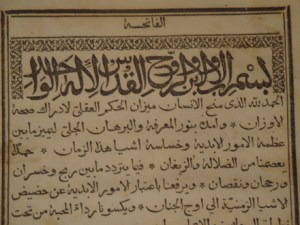 الفاتحـــة
بسم الاب والابن وروح القدس الاله الواحد
الحمد لله الذي منح الانسان ميزان الحكم العقلي لادراك صحة
الاوزان وامده بنور المعرفة والبرهان الجلي لتمييز ما بين
عظمة الامور الابدية وخساسة اشيا هذا الزمان حتى
يعصمنا من الضلالة والزيغان فيما يتردد ما بين ربح وخسران
ورجحان ونقصان ويرفعنا باعتبار الامور الابدية عن حضيض
الاشيا الزمنية الى اوج الجنان ويكسونا رداء المحبة من تحت